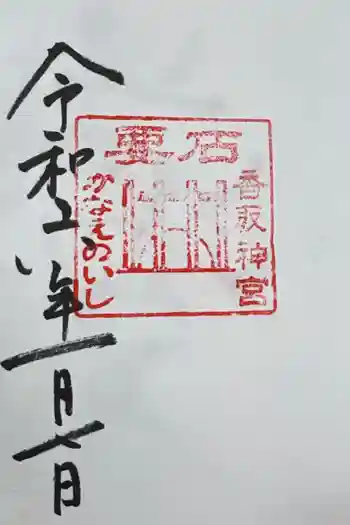 要石
香取神宮
かなえのいし
令和六年一月七日